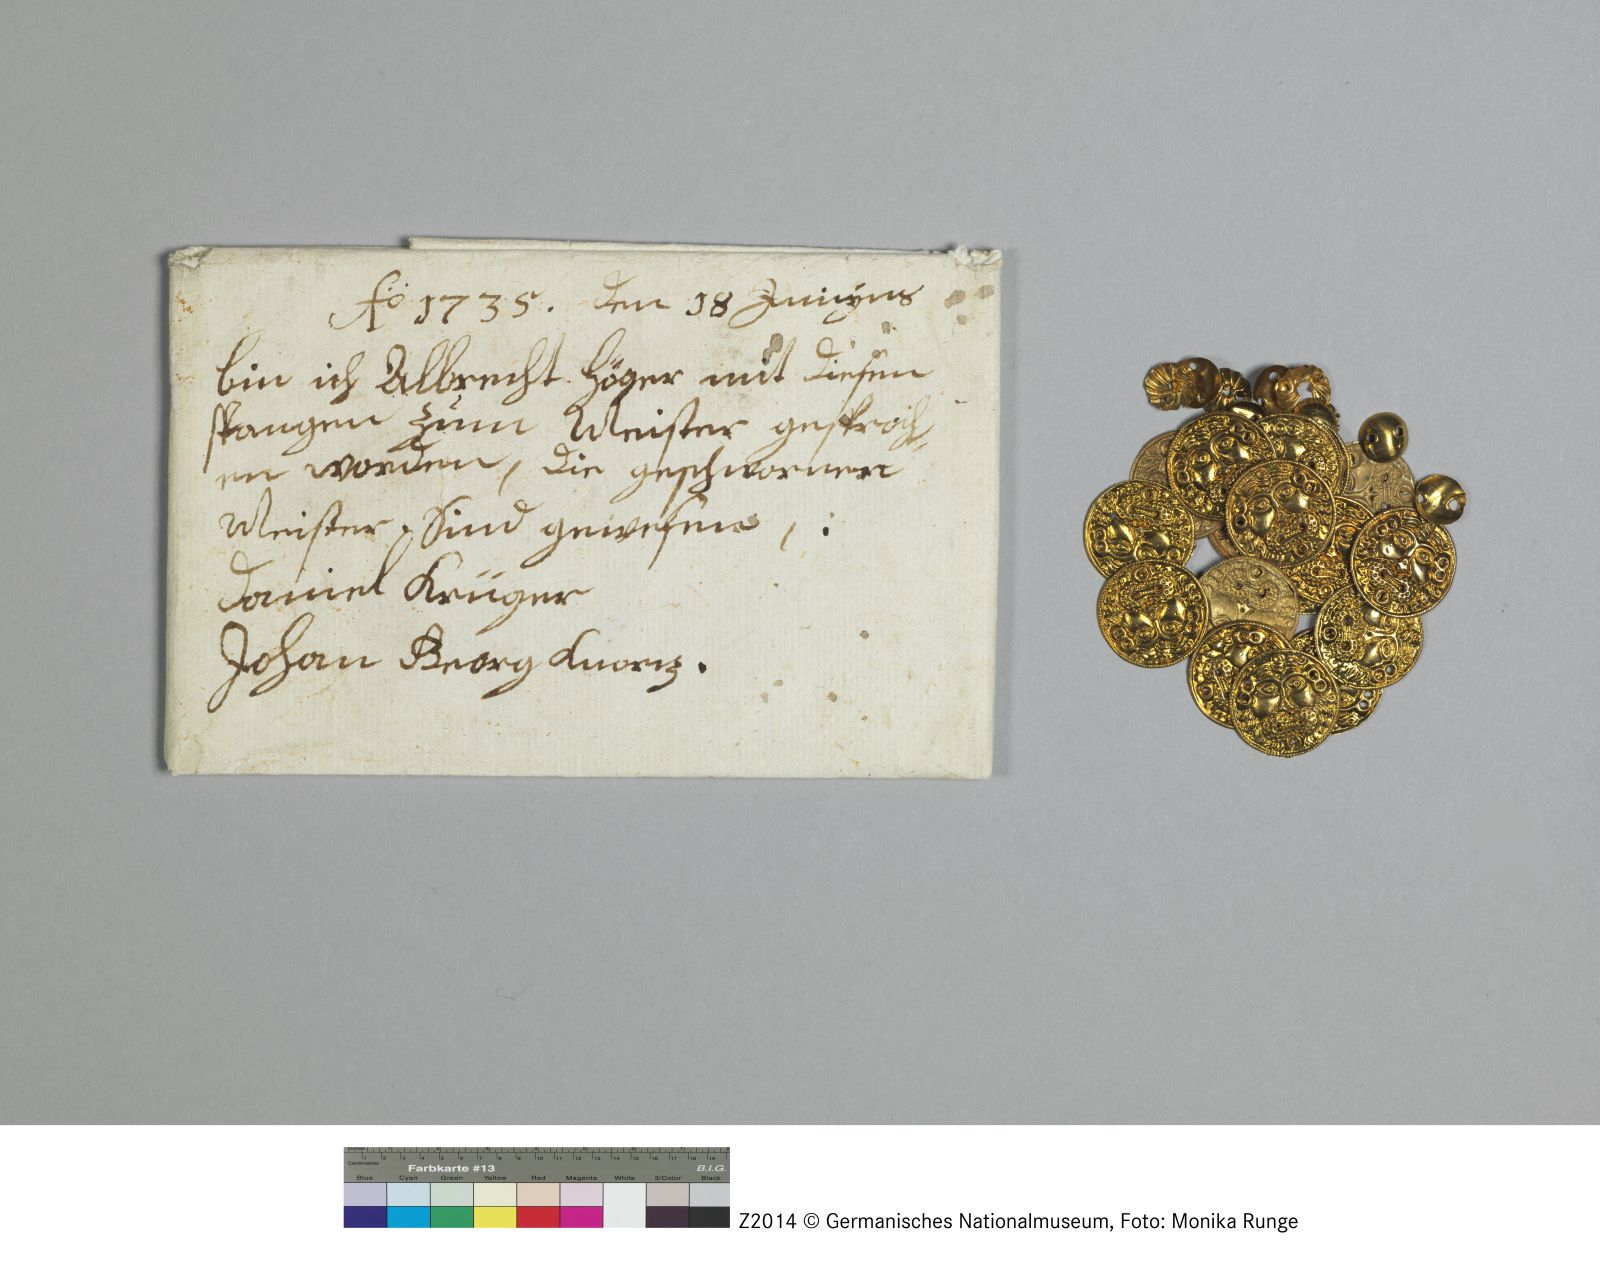 Aō 1735. den 18 Junÿus
bin ich Albrecht Höger mit diesen
spangen zum Meister gesproch-
en worden, die geschwornen
Meister, Sind gewesen, :
Daniel Krüger
Johan Georg Knorz.
Farbkarte #13
B.I.G.
Centimetres
Blue Cyan Green Yellow Red Magenta White 3/Color Black
Z2014 © Germanisches Nationalmuseum, Foto: Monika Runge